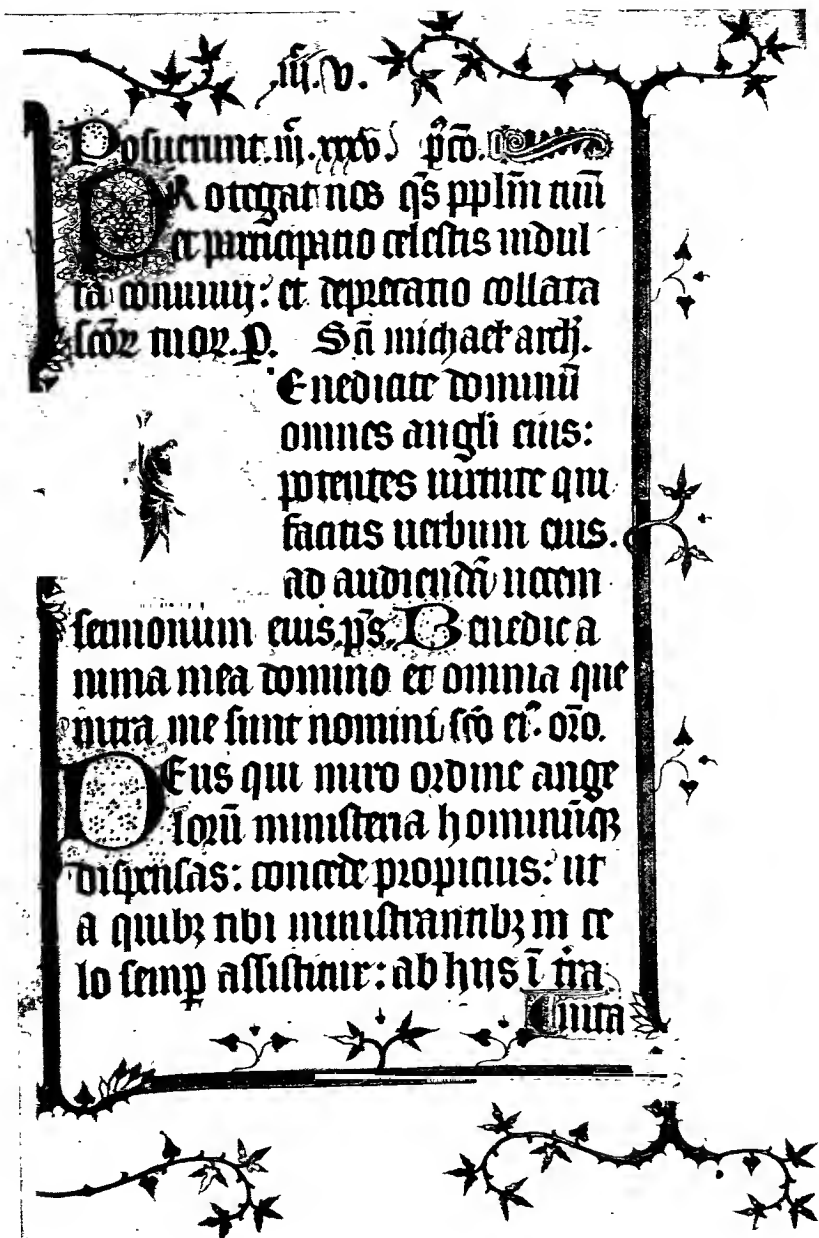 .iii. v.
Posuerunt. iii. xxxv. p̄cō.
PRotegat nos q̄s pplīm nīu
et participatio celestis indul
ta conuiuij: et deprecatio collata
scōꝝ tuoꝝ. p. Sc̄i michael arch̄.
Enedicite dominū
omnes angli eius:
potentes uirtute qui
facitis uerbum eius.
ad audiendū uocem
sermonum eius. p̄s. Benedic a
nima mea domino et omnia que
intra me sunt nomini scō ei⁹. or̄o.
DEus qui miro ordine ange
lorū ministeria hominūqꝫ
dispensas: concede propicius: ut
a quibꝫ tibi ministrantibꝫ in ce
lo semꝑ assistitur: ab hiis ī tr̄a
uita